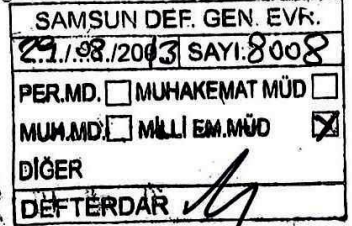 SAMSUN DEF. GEN. EVR.
29./.08./2013 SAYI: 8008
PER.MD. ☐ MUHAKEMAT MÜD ☐
MUH.MD. ☐ MİLLİ EM.MÜD ☒
DİĞER
DEFTERDAR